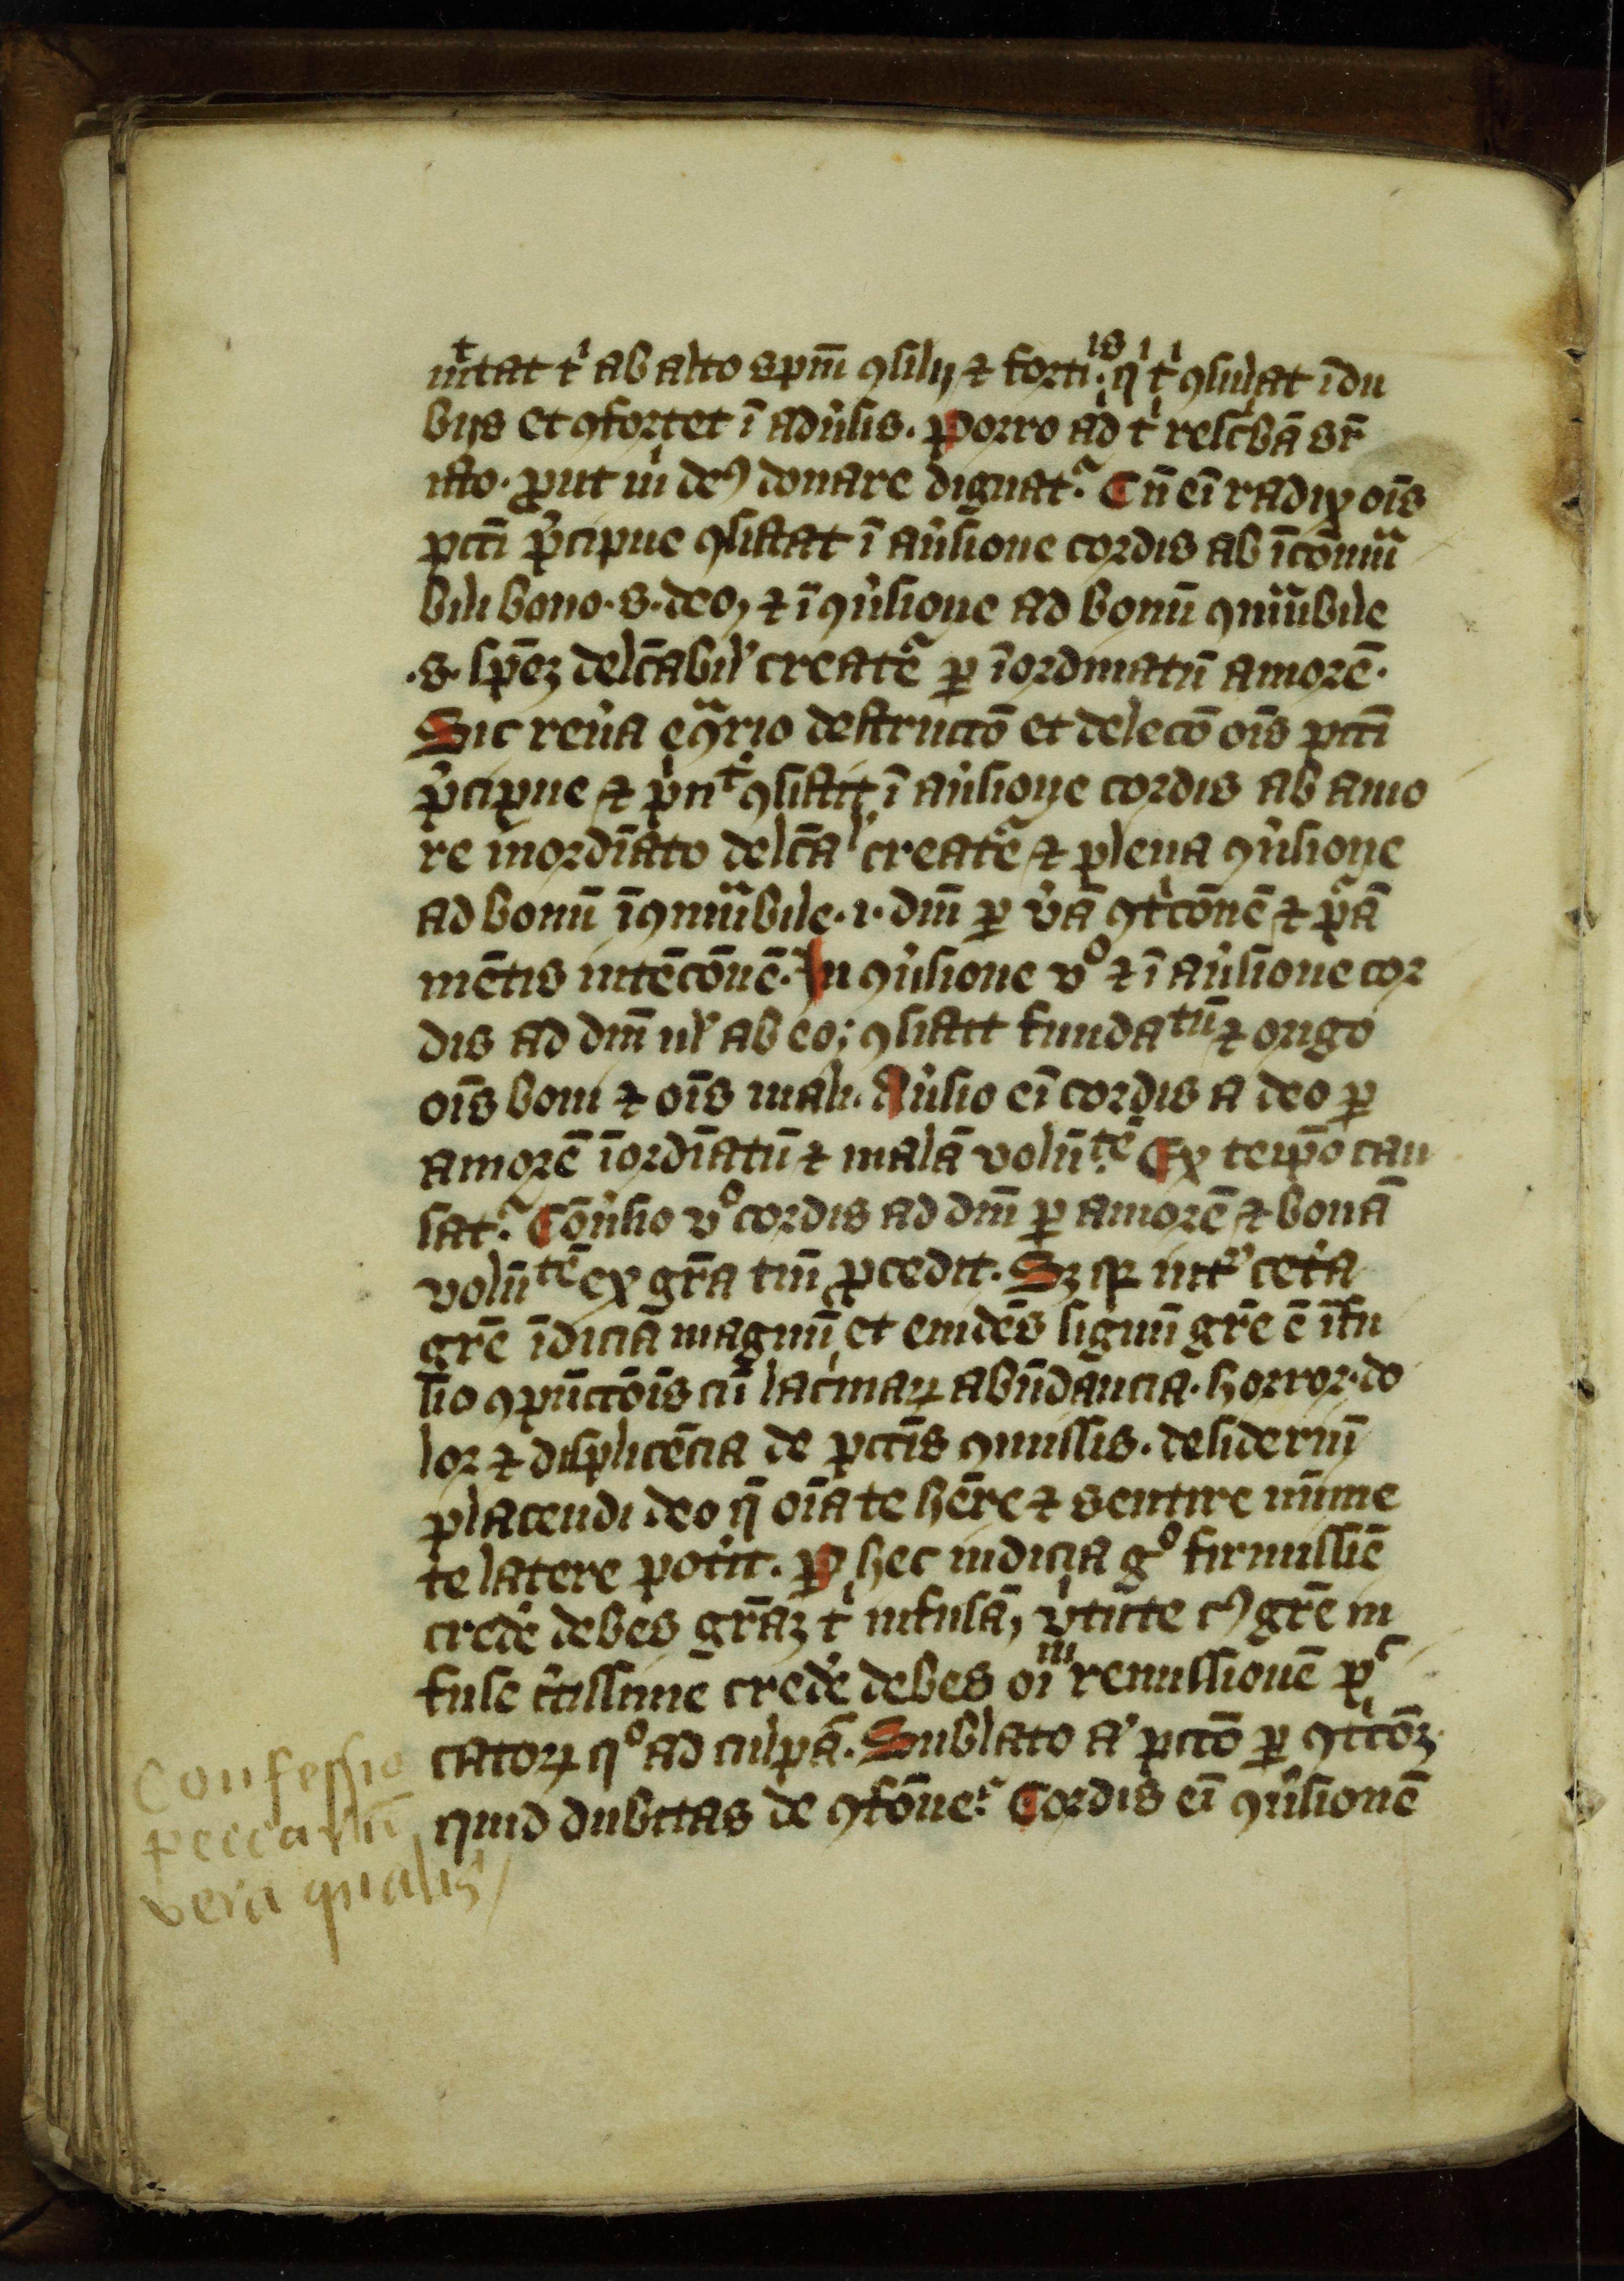 mͭtat tͥ ab alto spm̄ ꝯsilij ⁊ forti.ͥˢ qͥ tͥ ꝯsulat ī du
bijs et ꝯfortet ī adu̓sis. Porro ad tͥ
 ꝓut mͥ deꝰ donare dignatᷣ. Cū eī radix oīs
pcti p̓cipue ꝯsistat ī au̓sione cordis ab
bili bono .s. deo, ⁊ ī ꝯu̓sione ad bonū ꝯmutͣbile
.s. spēꝫ delc̄abil' creatᷣē ꝑ īordinatū amorē.
Sic reu̓a eꝯͣrio destructō et delecō oīs pcti
p̓cipue ⁊ pͥnͭ ꝯsistit ī au̓sione cordis ab amo
re inordīato delc̄al' creatᷣe ⁊ plena ꝯu̓sione
ad bonū īꝯmutͣbile .i. dm̄ ꝑ v̓ā ꝯtͥcōnē ⁊ pͣā
mētis intēcōnē. In ꝯu̓sione v° ⁊ ī au̓sione cor
dis ad dm̄ ul' ab eo; ꝯsistit fundatū ⁊ origo
oīs boni ⁊ oīs mali. Au̓sio eī cordis a deo ꝑ
amorē īordīatū ⁊ malā volūtē. Ex teip̄o cau
satᷣ. Cōu̓sio v° cordis ad dm̄ ꝑ amorē ⁊ bonā
volūtē ex gr̄a tm̄ ꝓcedit. Sꝫ int' cet̓a
gr̄e īdicia magnū et euidēs signū gr̄e ē īfu
sio ꝯpūctōis cū lacͥmaꝝ abūdācia. horror. do
lor ⁊ displicēcia de pctīs ꝯmissis. desideriū
placendi deo q̄ oīa te hēre ⁊ sentire mīme
te latere pot̓it. Per hec indicia g° firmissiē
cred̓e debes gr̄aꝫ tͥ infusā, vͥtute cꝰ gr̄e in
fuse c̓tissime cred̓e debes oīͫ remissionē pͨ
catoꝝ q° ad culpā. Sublato a' pctō ꝑ ꝯtͥcōꝫ
quid dubitas de ꝯfōne? Cordis eī ꝯu̓sionē
Confessio
peccatī
vera qualis